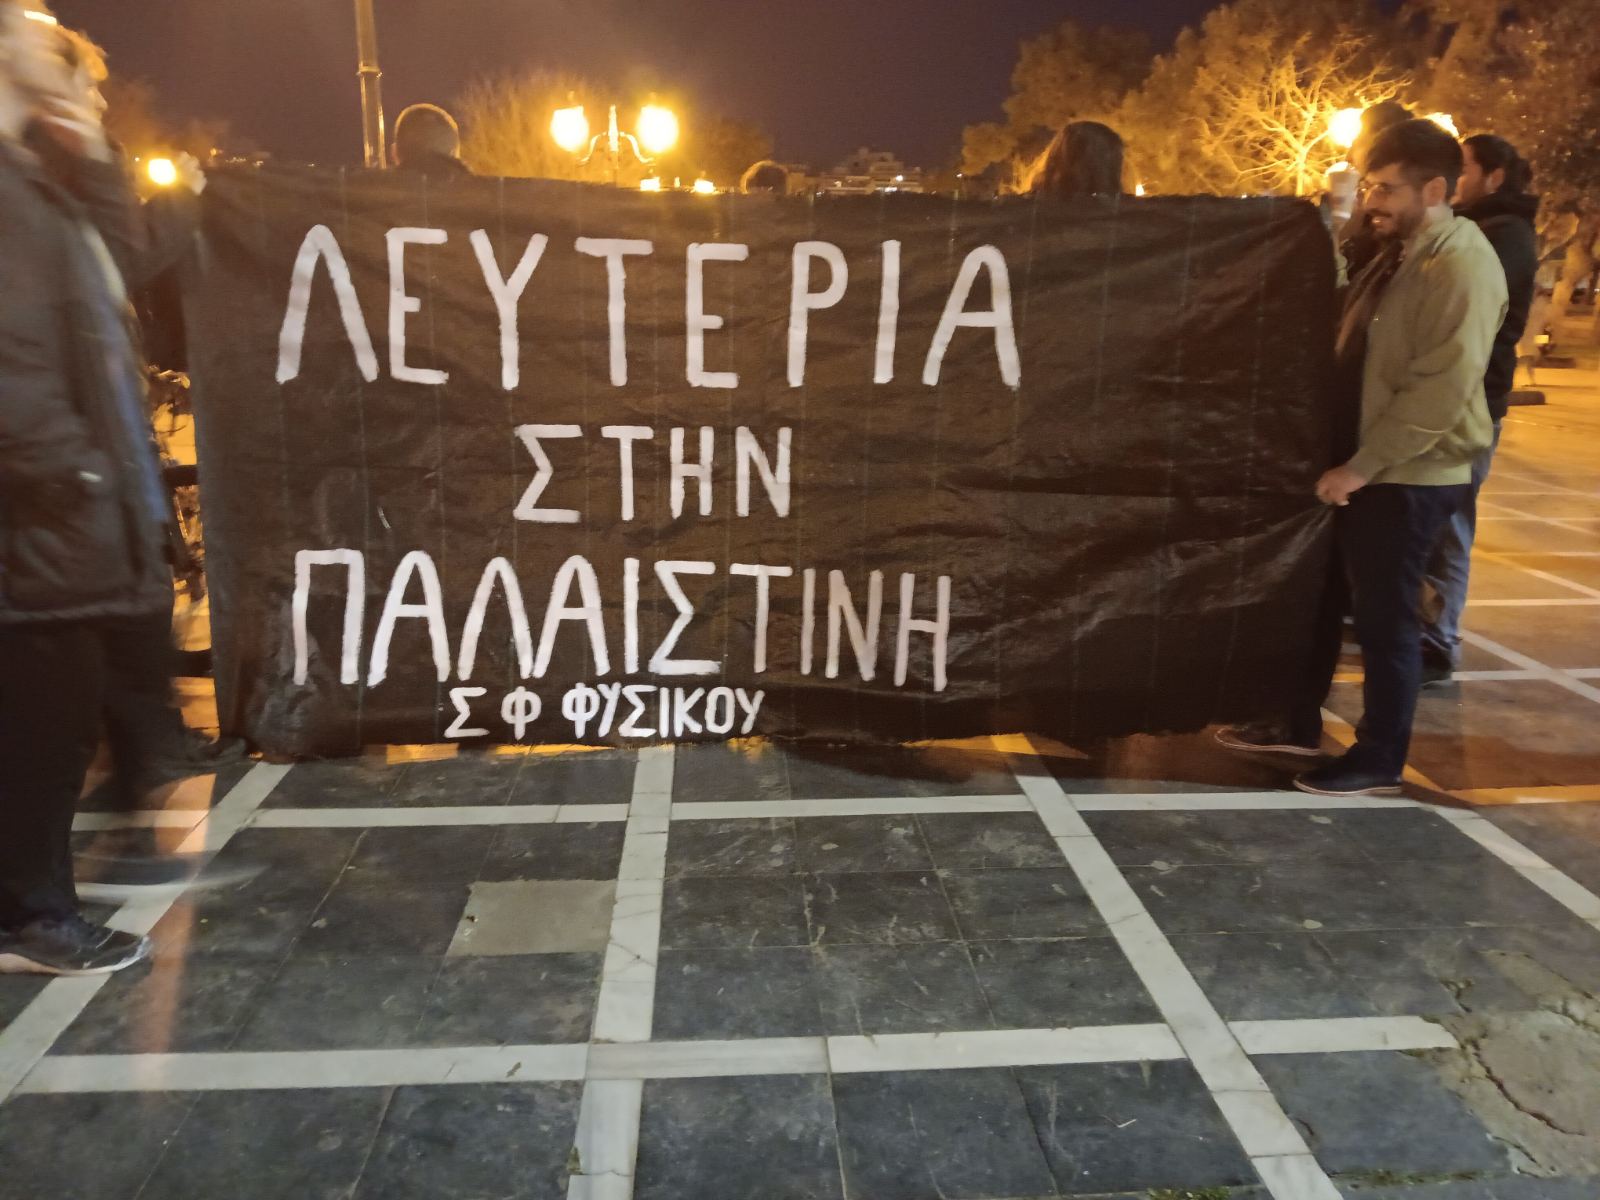 ΛΕΥΤΕΡΙΑ
ΣΤΗΝ
ΠΑΛΑΙΣΤΙΝΗ
ΣΦ ΦΥΣΙΚΟΥ